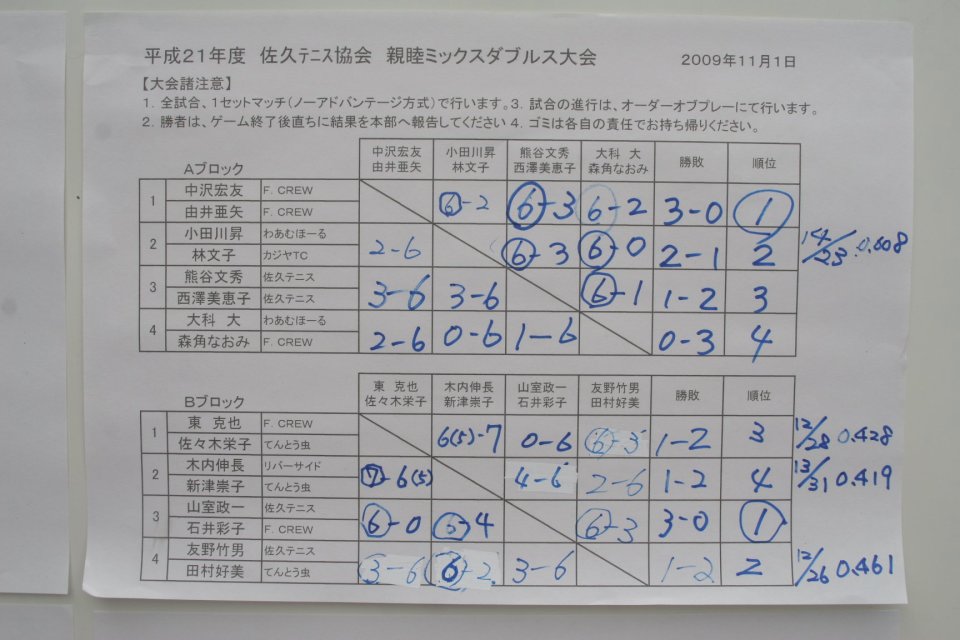 平成21年度 佐久テニス協会 親睦ミックスダブルス大会 2009年11月1日
【大会諸注意】
1. 全試合、1セットマッチ(ノーアドバンテージ方式)で行います。3. 試合の進行は、オーダーオブプレーにて行います。
2. 勝者は、ゲーム終了後直ちに結果を本部へ報告してください 4. ゴミは各自の責任でお持ち帰りください。
Aブロック 中沢宏友 由井亜矢 小田川昇 林文子 熊谷文秀 西澤美恵子 大科 大 森角なおみ 勝敗 順位
1 中沢宏友 F. CREW 6-2 6-3 6-2 3-0 1
由井亜矢 F. CREW
2 小田川昇 わあむほーる 2-6 6-3 6-0 2-1 2 14/23 0.608
林文子 カジヤTC
3 熊谷文秀 佐久テニス 3-6 3-6 6-1 1-2 3
西澤美恵子 佐久テニス
4 大科 大 わあむほーる 2-6 0-6 1-6 0-3 4
森角なおみ F. CREW
Bブロック 東 克也 佐々木栄子 木内伸長 新津崇子 山室政一 石井彩子 友野竹男 田村好美 勝敗 順位
1 東 克也 F. CREW 6(5)-7 0-6 6-3 1-2 3 12/28 0.428
佐々木栄子 てんとう虫
2 木内伸長 リバーサイド 7-6(5) 4-6 2-6 1-2 4 13/31 0.419
新津崇子 てんとう虫
3 山室政一 佐久テニス 6-0 -4 6-3 3-0 1
石井彩子 F. CREW
4 友野竹男 佐久テニス 3-6 6-2 3-6 1-2 2 12/26 0.461
田村好美 てんとう虫